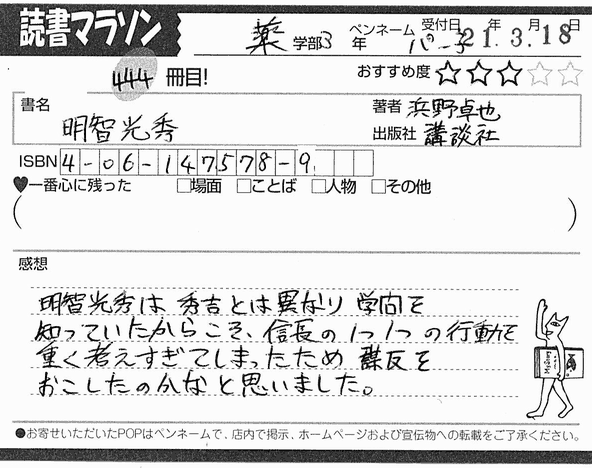 読書マラソン
薬 学部 3 年 ペンネーム パー子 受付日 21年 3月 18日
444 冊目!
おすすめ度 ★★★☆☆
書名 明智光秀
著者 浜野卓也
出版社 講談社
ISBN 4-06-147578-9
♥一番心に残った □場面 □ことば □人物 □その他
( )
感想
明智光秀は 秀吉とは異なり 学問を
知っていたからこそ、信長の1つ1つの行動を
重く考えすぎてしまったため 謀反を
おこしたのかなと思いました。
●お寄せいただいたPOPはペンネームで、店内で掲示、ホームページおよび宣伝物への転載をご了承ください。